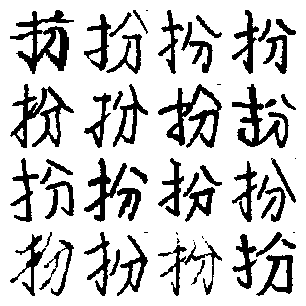 扮扮扮扮
扮扮扮扮
扮扮扮扮
扮扮扮扮